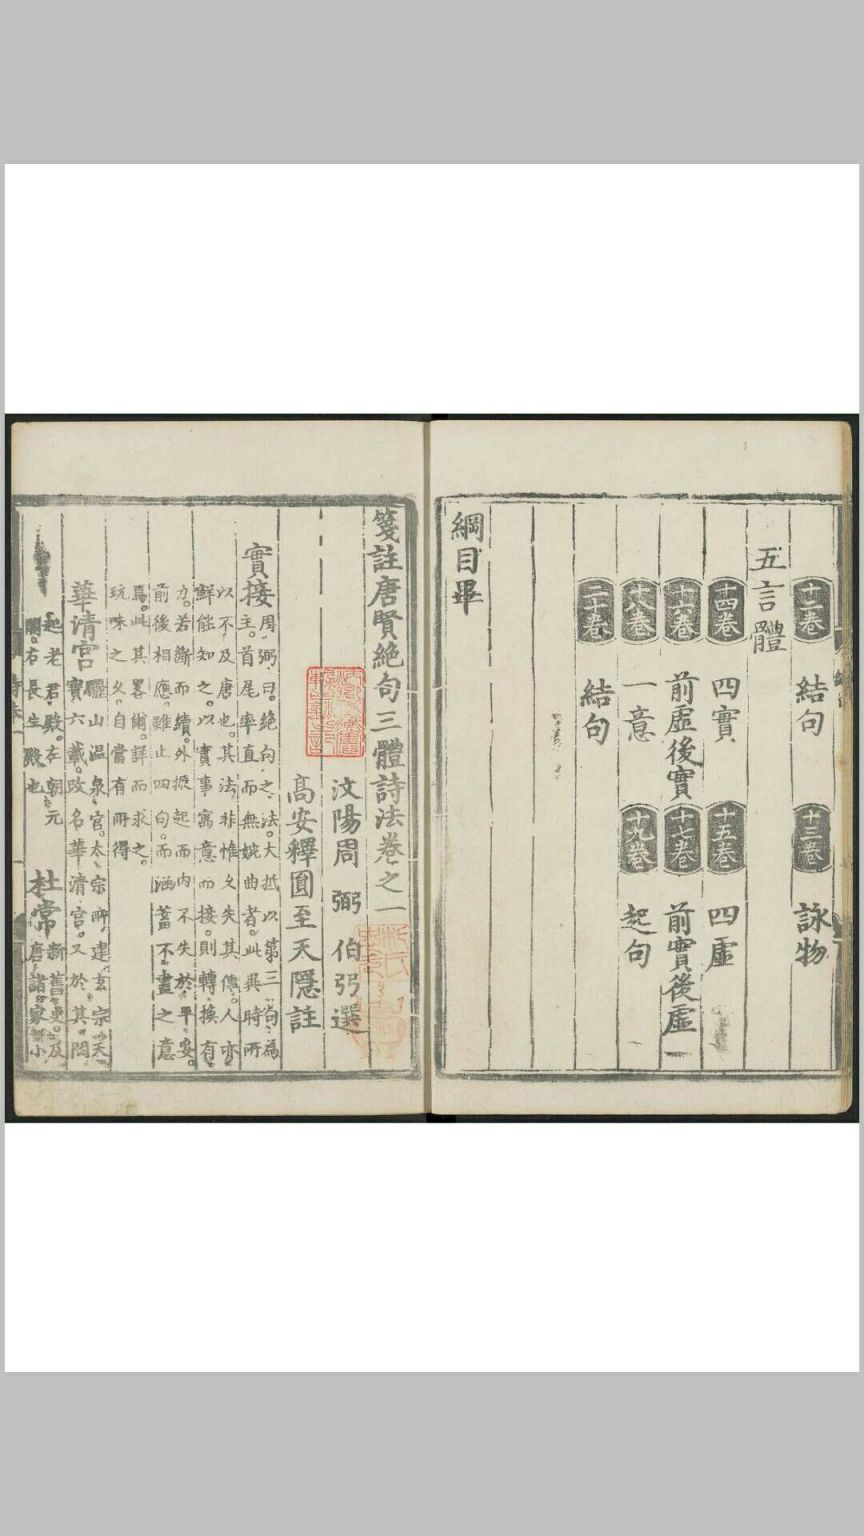 十二卷 結句 十三卷 詠物
五言體
十四卷 四實 十五卷 四虛
十六卷 前虛後實 十七卷 前實後虛
十八卷 一意 十九卷 起句
二十卷 結句
綱目畢
箋註唐賢絕句三體詩法卷之一
汶陽周 弼 伯弜 選
高安釋圓至天隱註
實接
周弼曰絕句之法大抵以第三句為
主首尾率直而無婉曲者此異時所
以不及唐也其法非惟久失其傳人亦
鮮能知之以實事寓意而接則轉換有
力若斷而續外振起而内不失於平妥
前後相應雖止四句而涵蓄不盡之意
焉此其畧爾詳而求之
玩味之久自當有所得
華清宮
驪山温泉宮太宗所建玄宗天
寶六載改名華清宮又於其間
起老君殿左朝元
閣右長生殿也
杜常
新舊史及
唐諸家小